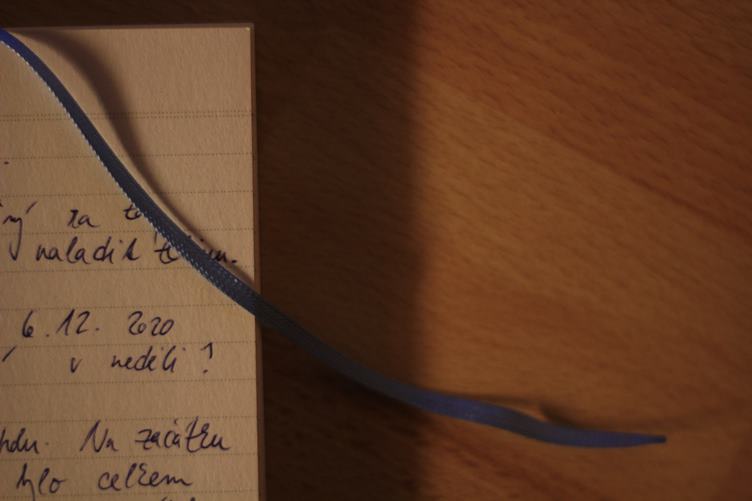 ný za to
naladil
6.12. 2020
v neděli?
Na začátku
bylo celkem